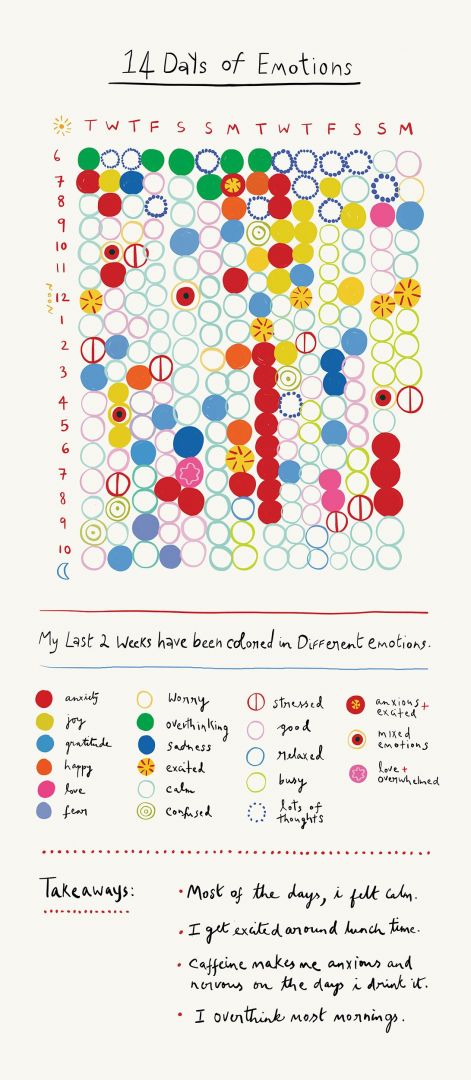 14 Days of Emotions
T W T F S S M T W T F S S M
6
7
8
9
10
11
NOON
12
1
2
3
4
5
6
7
8
9
10
My Last 2 Weeks have been colored in Different emotions.
anxiety
joy
gratitude
happy
love
fear
worry
overthinking
sadness
excited
calm
confused
stressed
good
relaxed
busy
lots of
thoughts
anxious +
excited
mixed
emotions
love +
overwhelmed
Takeaways:
• Most of the days, i felt calm.
• I get excited around lunch time.
• Caffeine makes me anxious and
nervous on the days i drink it.
• I overthink most mornings.